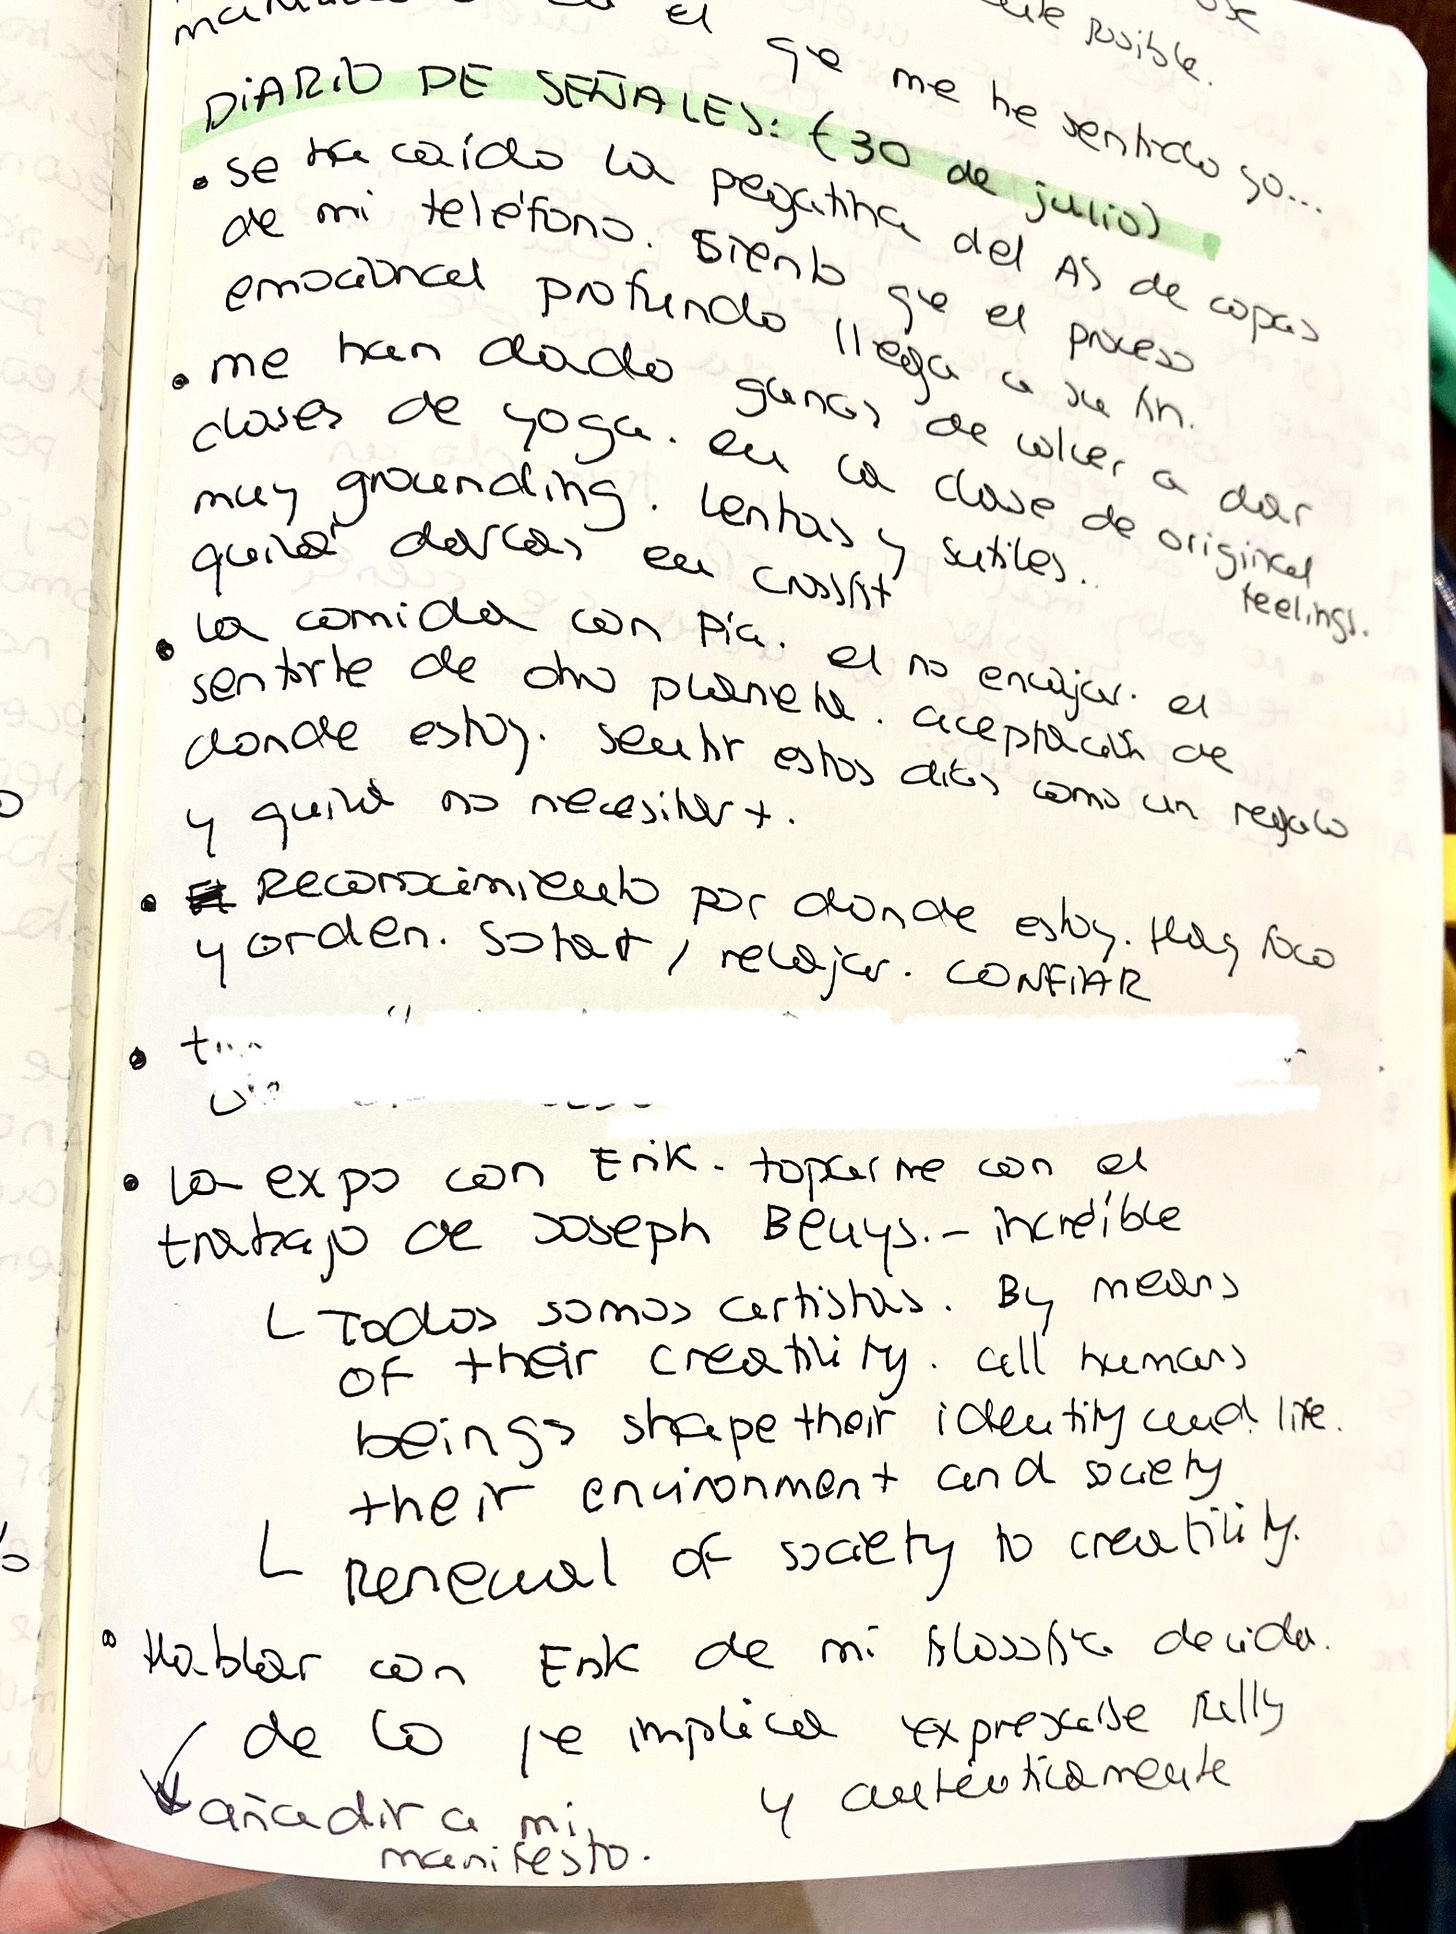 el
posible.
que me he sentido yo...
DIARIO DE SEÑALES: (30 de julio)
• se ha caído la pegatina del AS de copas
de mi teléfono. Siento que el proceso
emocional profundo llega a su fin.
• me han dado ganas de volver a dar
clases de yoga. en la clase de original feelings.
muy grounding. Lentas y sutiles..
quizá darlas en crossfit
• La comida con Pía. el no encajar. el
sentirte de otro planeta. aceptación de
donde estoy. Sentir estos días como un regalo
y quizá no necesitar +.
• Reconocimiento por donde estoy. Hay foco
y orden. Soltar / relajar. CONFIAR
•
• La expo con Erik. toparme con el
trabajo de Joseph Beuys. - increíble
L Todos somos artistas. By means
of their creativity. all humans
beings shape their identity and life.
their environment and society
L Renewal of society to creativity.
• Hablar con Erik de mi filosofía de vida.
de lo que implica expresarse fully
y auténticamente
añadir a mi
manifesto.